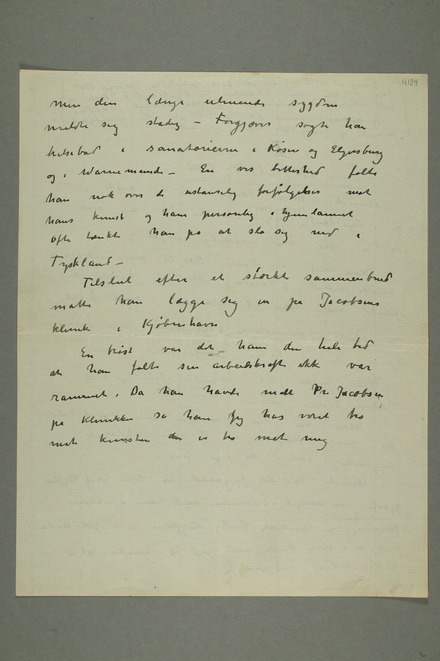 N 134
men den længe ulmende sygdom
meldte sig stadig – Forgjæves søgte han
helsebod i sanatorierne i Kösen og Elgersburg
og i Warnemünde – En vis bitterhed følte
han nok over de ustanselig forfølgelser mot
hans kunst og ham personlig i hjemlannet
Ofte tænkte han på at slå sig ned i
Tyskland –
Tilslut efter et stærkt sammenbrud
måtte han lægge sig in på Jacobsens
klinik i Kjøbenhavn
En trøst var det ham den hele tid
at han følte sin arbeidskraft ikke var
rammet. Da han havde malt Pr. Jacobsen
på klinikken sa han Jeg har været tro
mot kunsten den er tro mot mig